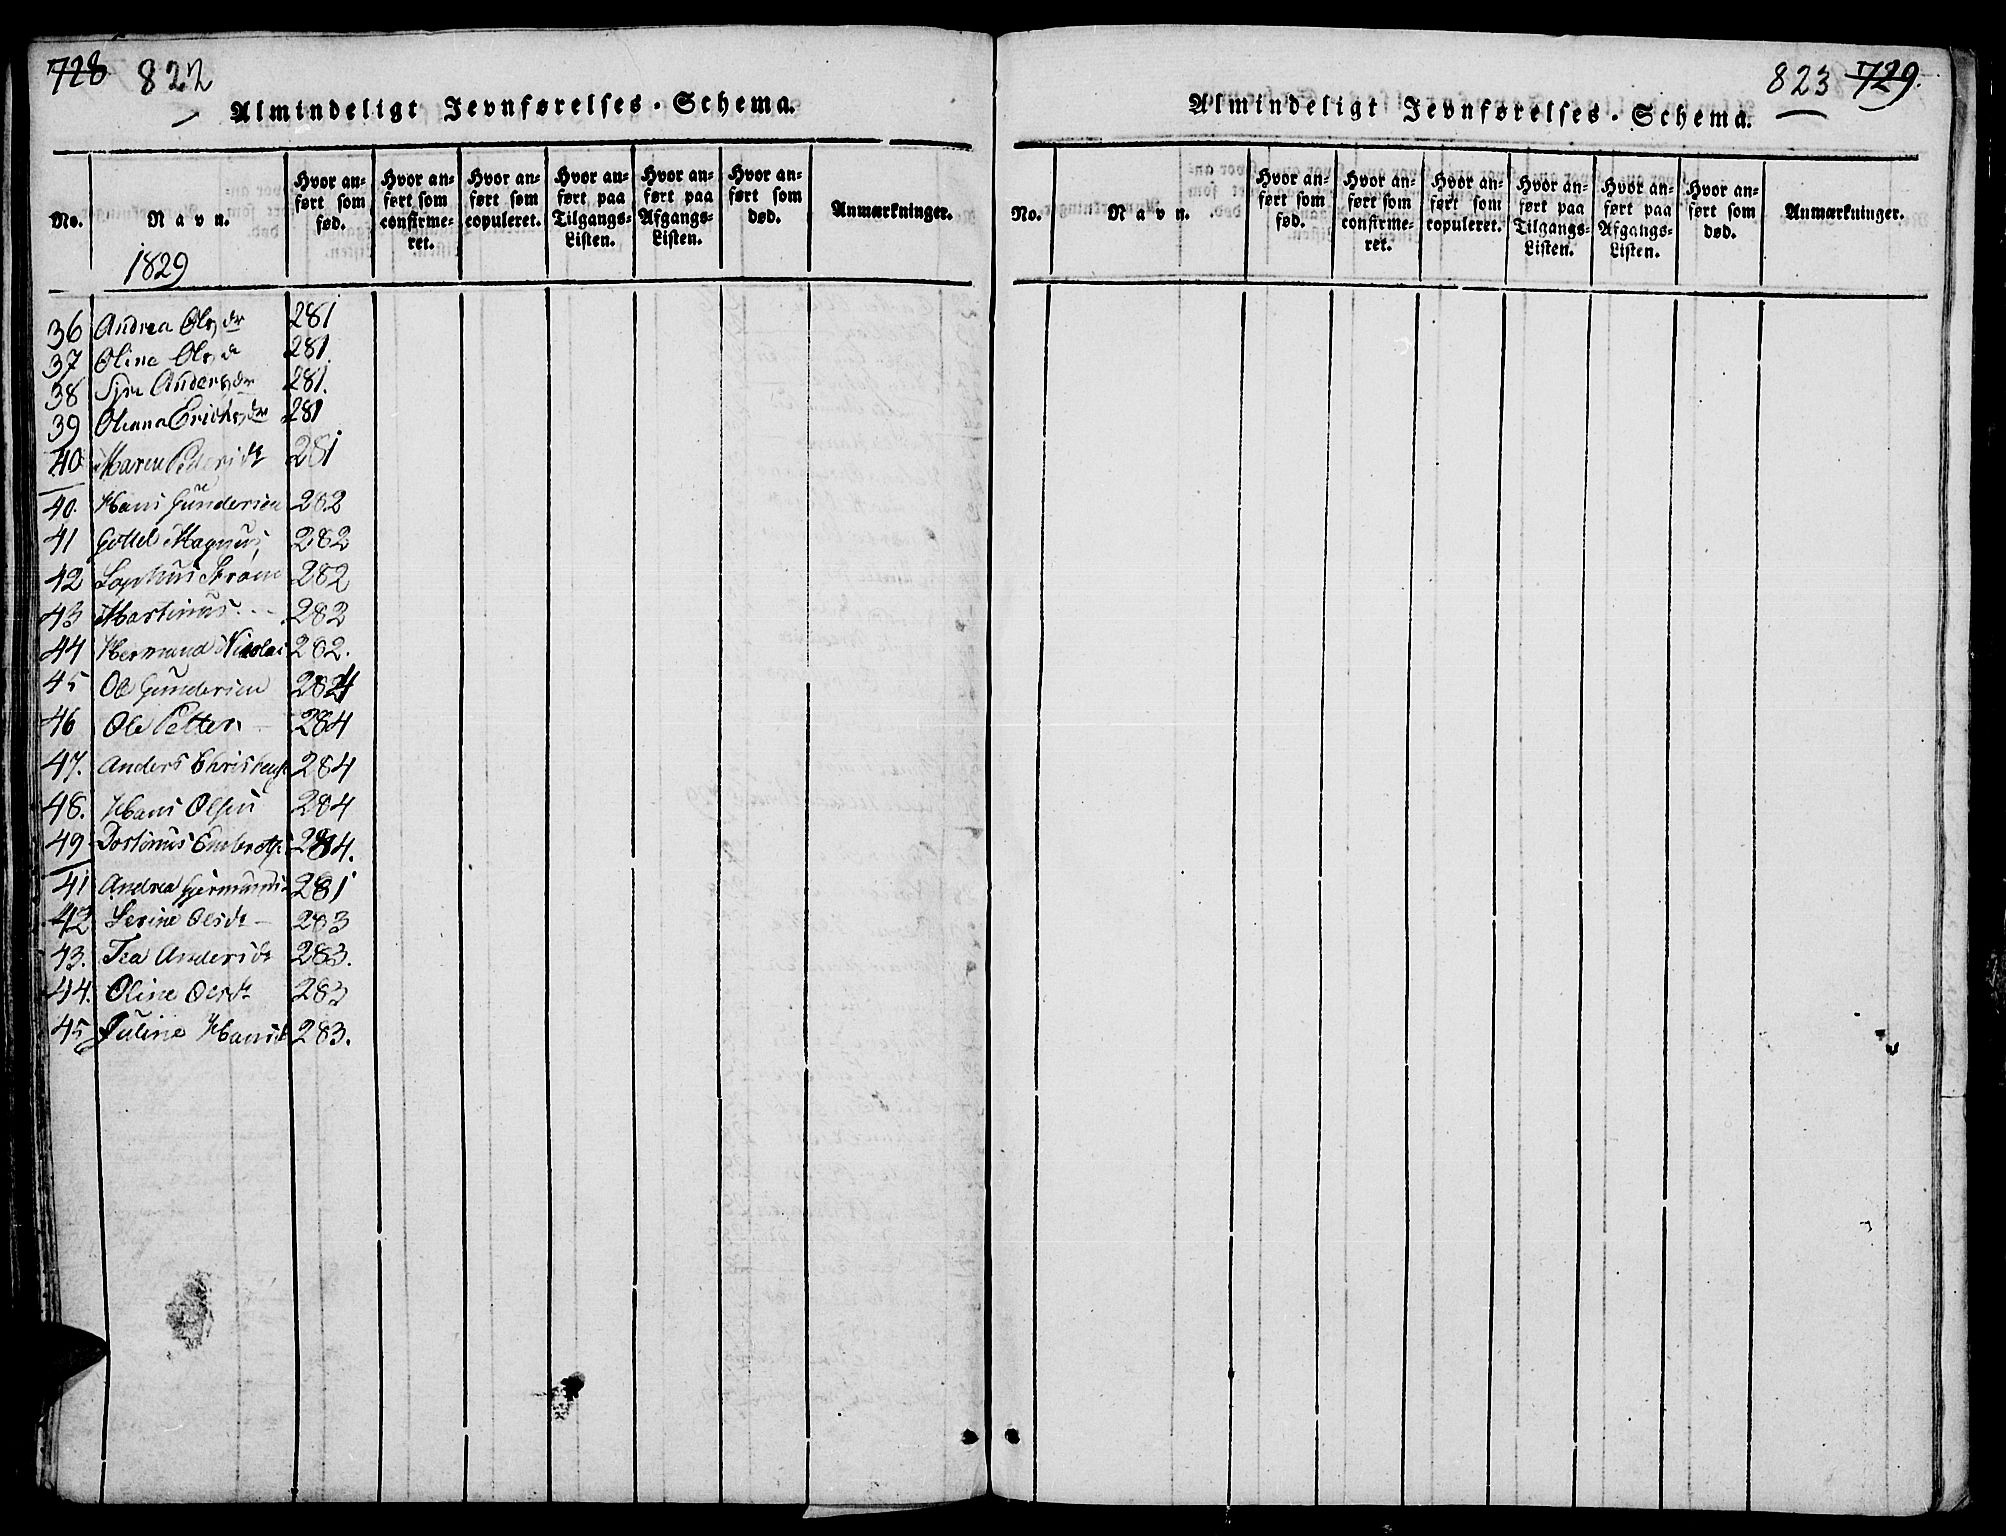 728 822
Almindeligt Jevnførelses-Schema.
No.
Navn.
Hvor anført som fød.
Hvor anført som confirmeret.
Hvor anført som copuleret.
Hvor anført paa Tilgangs-Listen.
Hvor anført paa Afgangs-Listen.
Hvor anført som død.
Anmærkninger.
1829
36 Andrea Ols dr 281
37 Oline Ols d 281
38 Anders dr 281.
39 Erichs dr 281
40 Maren Peders dr 281
40. Hans Gundersen 282
41 Gottel Magnus 282
42 Sophus Strøm 282
43 Martinus 282
44 Hermand Nicolai 282.
45 Ole Gundersen 284
46 Ole Petter 284
47. Anders Christens 284
48. Hans Olsen 284
49 Embretse 284.
41 Andrea 281
42 Serine Olsdr 283
43. Tea Andersdr 283.
44. Oline Olsdr 283
45 Juline Hansd 283.
823 729.
Almindeligt Jevnførelses-Schema.
No.
Navn.
Hvor anført som fød.
Hvor anført som confirmeret.
Hvor anført som copuleret.
Hvor anført paa Tilgangs-Listen.
Hvor anført paa Afgangs-Listen.
Hvor anført som død.
Anmærkninger.